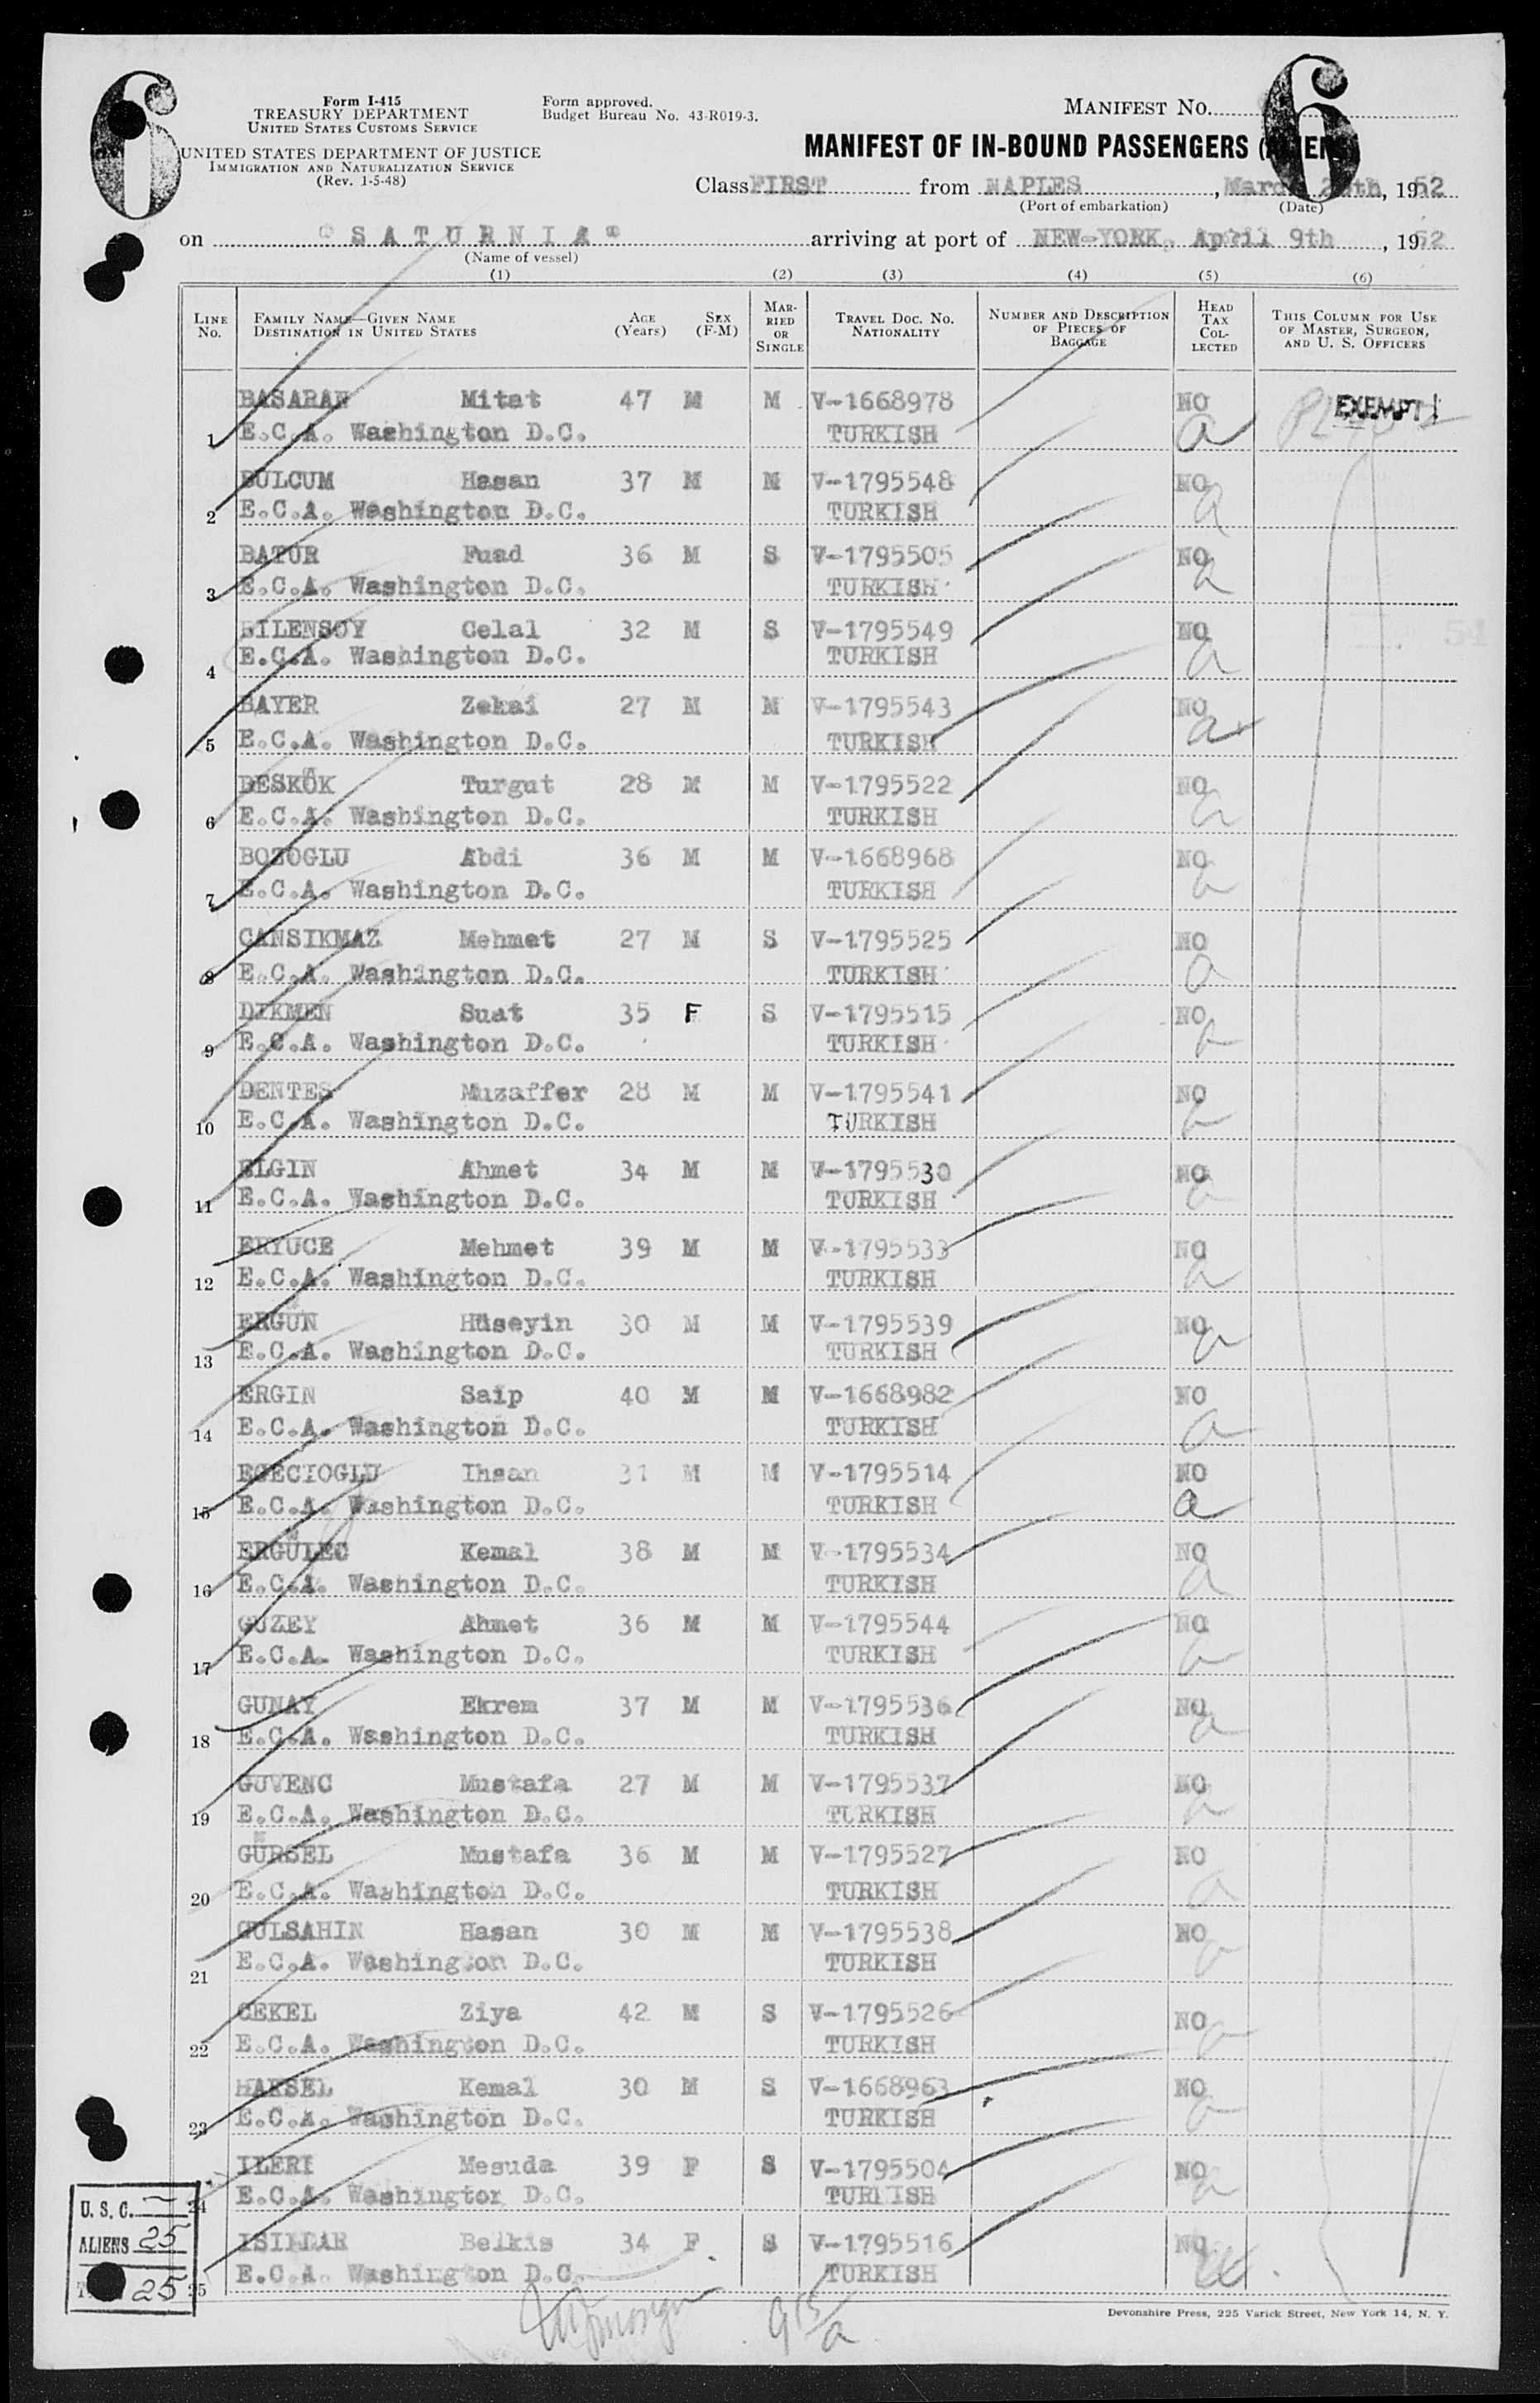 6
6
Form I-415
TREASURY DEPARTMENT
UNITED STATES CUSTOMS SERVICE
UNITED STATES DEPARTMENT OF JUSTICE
IMMIGRATION AND NATURALIZATION SERVICE
(Rev. 1-5-48)
Form approved.
Budget Bureau No. 43-R019-3.
MANIFEST NO.
MANIFEST OF IN-BOUND PASSENGERS
Class FIRST from NAPLES, 1952
(Port of embarkation) (Date)
on "SATURNIA" arriving at port of NEW-YORK, April 9th, 1952
(Name of vessel)
(1) (2) (3) (4) (5) (6)
LINE No. FAMILY NAME—GIVEN NAME DESTINATION IN UNITED STATES AGE (Years) SEX (F-M) MARRIED OR SINGLE TRAVEL DOC. NO. NATIONALITY NUMBER AND DESCRIPTION OF PIECES OF BAGGAGE HEAD TAX COLLECTED THIS COLUMN FOR USE OF MASTER, SURGEON, AND U. S. OFFICERS
BASARAN Mitat 47 M M V-1668978 NO EXEMPT
1 E.C.A. Washington D.C. TURKISH a
BULCUM Hasan 37 M M V-1795548 NO
2 E.C.A. Washington D.C. TURKISH a
BATUR Fuad 36 M S V-1795505 NO
3 E.C.A. Washington D.C. TURKISH a
BILENSOY Celal 32 M S V-1795549 NO
4 E.C.A. Washington D.C. TURKISH a
BAYER Zekai 27 M M V-1795543 NO
5 E.C.A. Washington D.C. TURKISH a
BESKÖK Turgut 28 M M V-1795522 NO
6 E.C.A. Washington D.C. TURKISH a
BOZOGLU Abdi 36 M M V-1668968 NO
7 E.C.A. Washington D.C. TURKISH a
CANSIKMAZ Mehmet 27 M S V-1795525 NO
8 E.C.A. Washington D.C. TURKISH a
DIKMEN Suat 35 F S V-1795515 NO
9 E.C.A. Washington D.C. TURKISH a
DENTES Muzaffer 28 M M V-1795541 NO
10 E.C.A. Washington D.C. TURKISH a
ELGIN Ahmet 34 M M V-1795530 NO
11 E.C.A. Washington D.C. TURKISH a
ERYUCE Mehmet 39 M M V-1795533 NO
12 E.C.A. Washington D.C. TURKISH a
ERGÜN Hüseyin 30 M M V-1795539 NO
13 E.C.A. Washington D.C. TURKISH a
ERGIN Saip 40 M M V-1668982 NO
14 E.C.A. Washington D.C. TURKISH a
EGECIOGLU Ihsan 31 M M V-1795514 NO
15 E.C.A. Washington D.C. TURKISH a
ERGÜLEC Kemal 38 M M V-1795534 NO
16 E.C.A. Washington D.C. TURKISH a
GUZEY Ahmet 36 M M V-1795544 NO
17 E.C.A. Washington D.C. TURKISH a
GUNAY Ekrem 37 M M V-1795536 NO
18 E.C.A. Washington D.C. TURKISH a
GUVENC Mustafa 27 M M V-1795537 NO
19 E.C.A. Washington D.C. TURKISH a
GÜRSEL Mustafa 36 M M V-1795527 NO
20 E.C.A. Washington D.C. TURKISH a
GULSAHIN Hasan 30 M M V-1795538 NO
21 E.C.A. Washington D.C. TURKISH a
GEKEL Ziya 42 M S V-1795526 NO
22 E.C.A. Washington D.C. TURKISH a
HAKSEL Kemal 30 M S V-1668963 NO
23 E.C.A. Washington D.C. TURKISH a
ILERI Mesuda 39 F S V-1795504 NO
24 E.C.A. Washington D.C. TURKISH a
Belkis 34 F S V-1795516 NO
25 E.C.A. Washington D.C. TURKISH
U. S. C. —
ALIENS 25
25
Devonshire Press, 225 Varick Street, New York 14, N. Y.